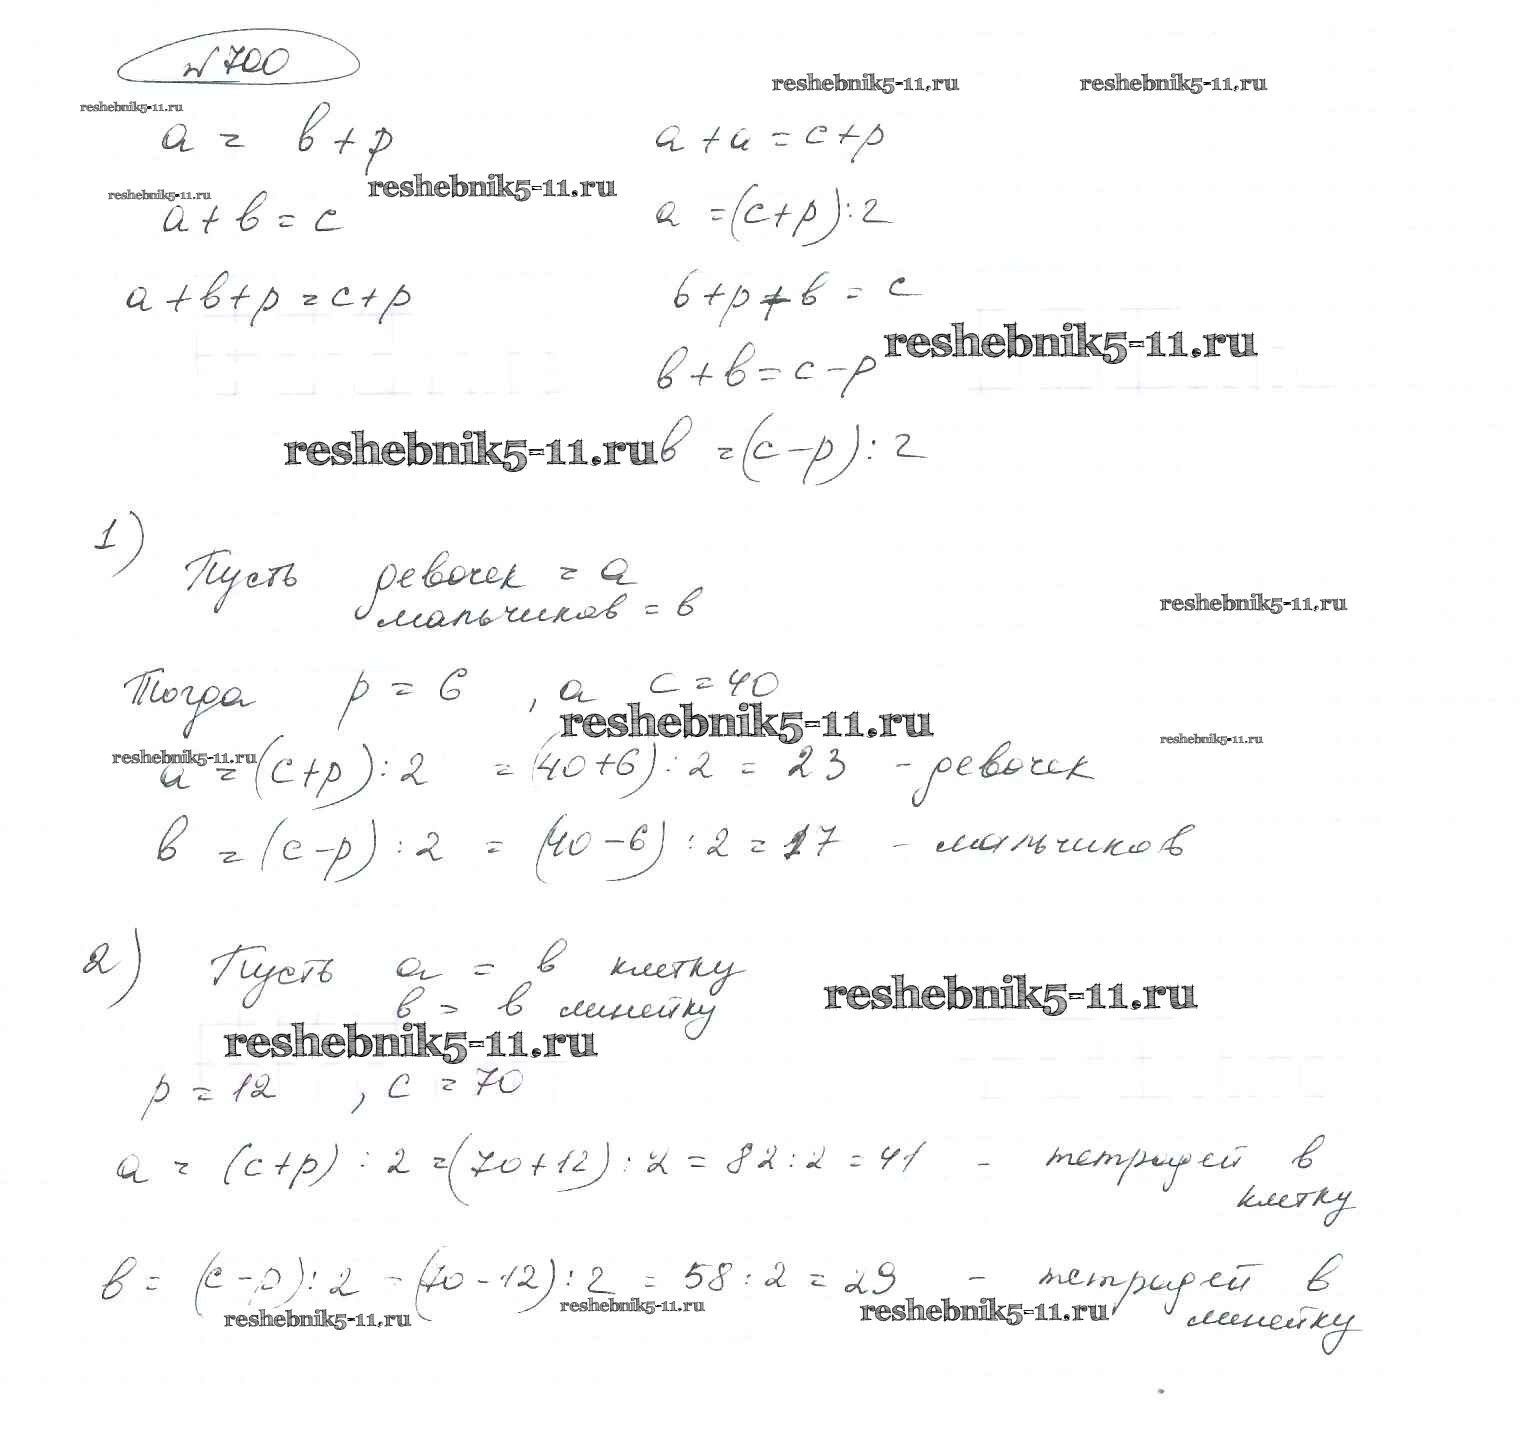 № 700
reshebnik5-11.ru reshebnik5-11.ru
reshebnik5-11.ru
a = в + p
a + a = c + p
reshebnik5-11.ru
reshebnik5-11.ru
a + в = c
a = (c + p) : 2
a + в + p = c + p
в + p + в = c
reshebnik5-11.ru
в + в = c - p
reshebnik5-11.ru
в = (c - p) : 2
1)
Пусть девочек = a
мальчиков = в
reshebnik5-11.ru
Тогда p = 6 , а c = 40
reshebnik5-11.ru
reshebnik5-11.ru
reshebnik5-11.ru
a = (c + p) : 2 = (40 + 6) : 2 = 23 - девочек
в = (c - p) : 2 = (40 - 6) : 2 = 17 - мальчиков
2) Пусть a = в клетку
в = в линейку
reshebnik5-11.ru
reshebnik5-11.ru
p = 12 , c = 70
a = (c + p) : 2 = (70 + 12) : 2 = 82 : 2 = 41 - тетрадей в
клетку
в = (c - p) : 2 = (70 - 12) : 2 = 58 : 2 = 29 - тетрадей в
линейку
reshebnik5-11.ru reshebnik5-11.ru reshebnik5-11.ru